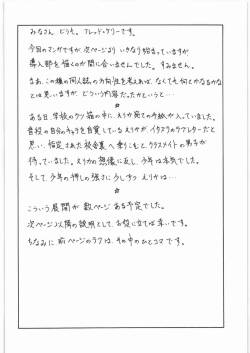 みなさん どうも。フレッド・ケリーです。
今回のマンガですが、次ページより いきなり始まっていますが
導入部を描くのが間に合いませんでした。すみません。
まぁ、この種の同人誌の方向性を考えれば、なくても何とかなるかな
とは思いますが、どういう内容だったかというと…
☆
ある日、学校のクツ箱の中に、えりか宛ての手紙が入っていました。
普段の自分のキャラを自覚しているえりかが イタズラのラブレターだと
思い、指定された校舎裏へ乗りこむと、クラスメイトの男子が
待っていました。えりかの想像に反し、今年は本気でした。
そして、今年の押しの強さに少しずつ えりかは…
☆
こういう展開が 数ページ ある予定でした。
次ページ以降の説明として、お役に立てば幸いです。
ちなみに 前ページのラフは、その中のひとコマです。